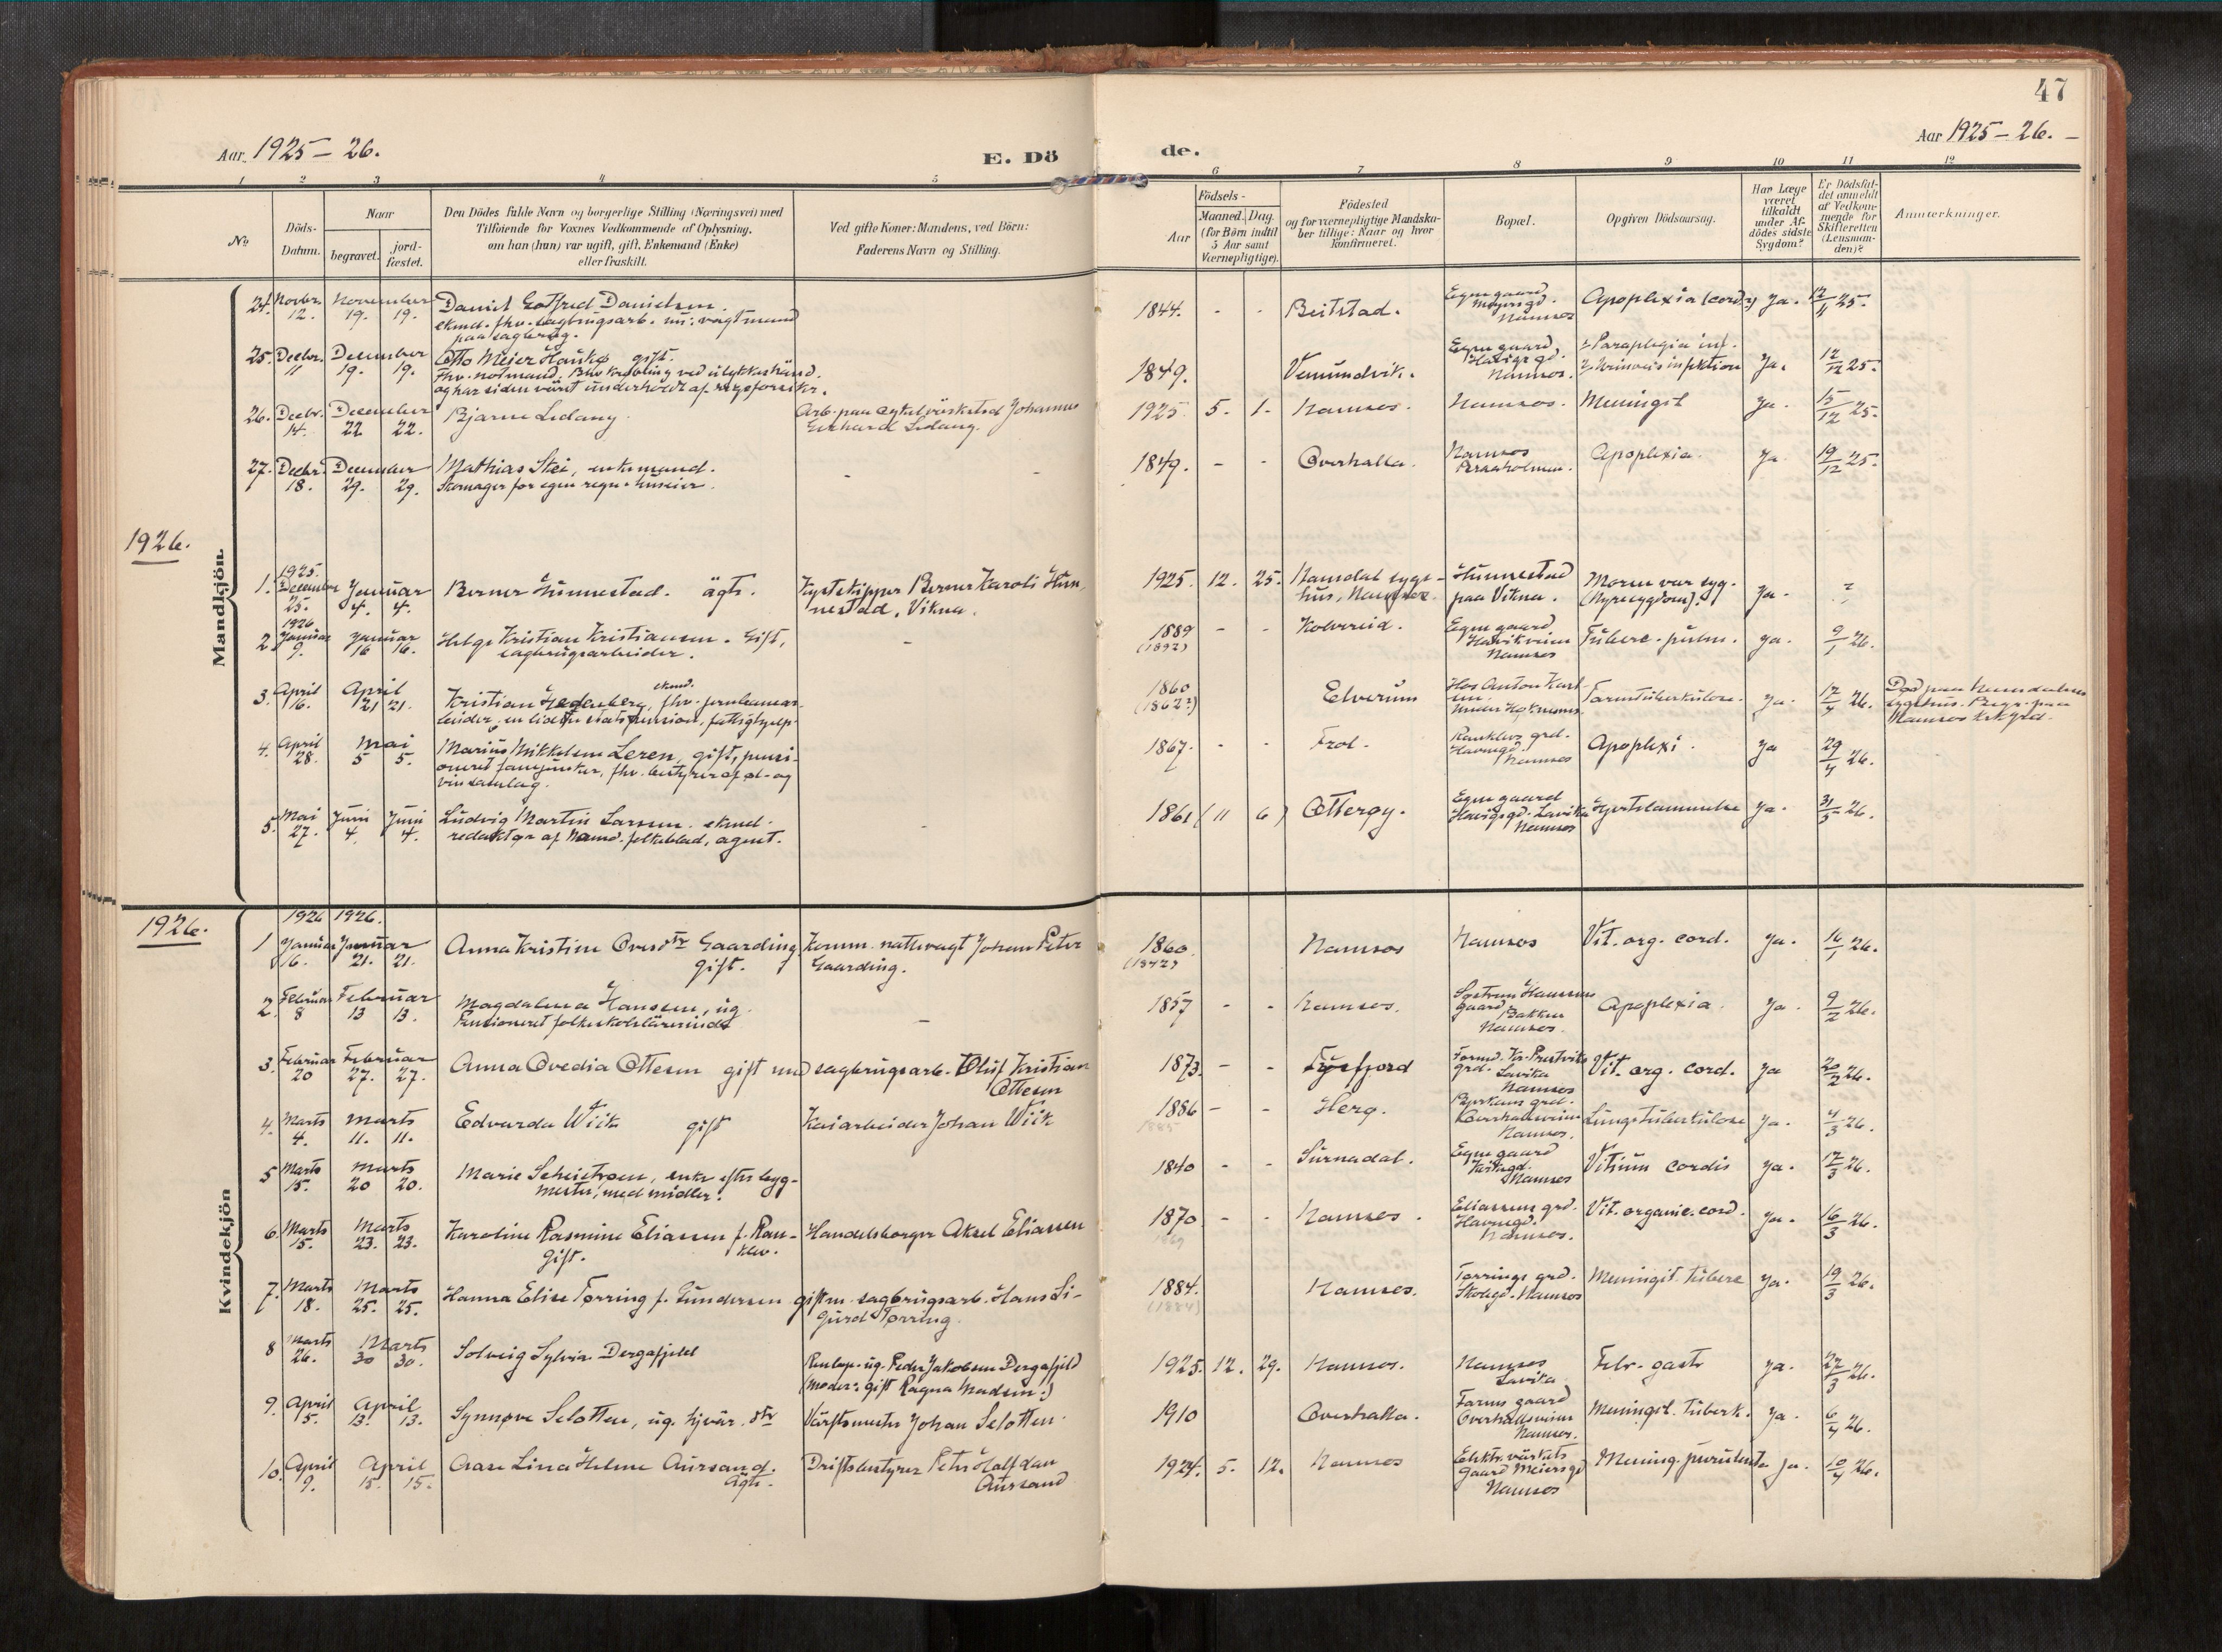 47
Aar 1925 - 26.
E. Dö
de.
Aar 1925 - 26. -
1 2 3 4 5 6 7 8 9 10 11 12
No
Döds-
Datum.
Naar
begravet.
jord-
fæstet.
Den Dödes fulde Navn og borgerlige Stilling (Næringsvei) med
Tilföiende for Voxnes Vedkommende af Oplysning,
om han (hun) var ugift, gift, Enkemand (Enke)
eller fraskilt.
Ved gifte Koner: Mandens, ved Börn:
Faderens Navn og Stilling.
Födsels-
Aar
Maaned. Dag.
(for Börn indtil
5 Aar samt
Værnepligtige).
Födested
og for værnepligtige Mandska-
ber tillige: Naar og hvor
konfirmeret.
Bopæl.
Opgiven Dödsaarsag.
Har Læge
været
tilkaldt
under Af-
dödes sidste
Sygdom?
Er Dödsfal-
det anmeldt
af Vedkom-
mende for
Skifteretten
(Lensman-
den)?
Anmærkninger.
Mandkjön.
24. Novbr. November Daniel Gotfred Danielsen. 1844. - - Beitstad. Egen gaard Apoplexia (cord?) Ja. 12/11 25.
12. 19. 19. ekmd. fhv. sagbrugsarb. nu: vagtmand Namsos
paa sagbrug.
25. Decbr. December Otto Meier Hauke gift. 1849. Vemundvik. Egen gaard, Paraplegia inf. Ja. 12/12 25.
11 19. 19. Fhv. notmand. ved ulykkeshænd. Namsos.
og har siden været underholdt af
26. Decbr. December Bjarne Lidang. Arb. paa Johannes 1925 5. 1. Namsos. Namsos. Meningit Ja. 15/12 25.
14. 22 22. Gerhard Lidang.
27. Decbr. December Mathias Stei, enkemand. - - 1849. - - Overhalla. Namsos Apoplexia. Ja 19/12 25.
18. 29. 29. Skomager for egen regn. huseier.
1926.
1925.
1. December Januar Berner Hunnestad. ägte. Kystskipper Berner Karoli Hun- 1925. 12. 25. Namdal syge- Hunnestad Moren var syg. Ja. ?
25. 4. 4. nestad, Vikna. hus, Namsos. paa Vikna. (Nyresygdom).
1926
2 Januar Januar Helge Kristian Kristiansen. Gift, - 1889 - - Kolvereid. Egen gaard Tuberc. pulm. Ja. 9/1 26.
9. 16 16. sagbrugsarbeider. (1892) Havikveien
Namsos
3. April April Kristian Hedenberg, ekmd. fhv. 1860 Elverum Hos Anton Karl- Tarmtuberkulose. Ja. 17/4 26. Død paa Namdalens
16. 21 21. (1862?) sygehus. Begr. paa
Namsos kirkegrd.
4. April Mai Marius Mikkelsen Leren, gift, pensi- 1867. - - Frol. grd. Apoplexi. Ja 29/4 26.
28. 5 5. oneret fhv. bestyrer af øl- og Havnegd.
vinsamlag. Namsos
5. Mai Juni Juni Ludvig Martin Larsen. ekmd. - 1861 (11 6) Otterøy. Egen gaard Hjertelammelse Ja. 31/5 26.
27. 4. 4. redaktør af Namd. folkeblad, agent. Lavika
Namsos
Kvindekjön
1926.
1926 1926.
1 Januar Januar Anna Kristine Ovesdtr Gaarding, Komm. nattevagt Johan Peter 1860. Namsos Namsos Vit. org. cord. Ja. 16/1 26.
16. 21. 21. gift. Gaarding.
2. Februar Februar Magdalena Hanssen, ug. - 1857 - - Namsos. Søstrene Hanssens Apoplexia. Ja. 9/2 26.
8 13 13. Pensioneret folkeskolelärerinde gaard Bakken
Namsos.
3. Februar Februar Anna Ovedia Ottesen gift med sagbrugsarb. Oluf Kristian 1873. - - Fosfjord Lavika Vit. org. cord. Ja 20/2 26.
20 27. 27. Ottesen Namsos
4. Marts Marts Edvarda Wiik gift Kaiarbeider Johan Wiik 1886 - - Herø. Namsos. Lungetuberkulose Ja. 4/3 26.
4. 11. 11. 1885
5 Marts Marts Marie enke efter byg- 1840 - - Surnadal. Egen gaard Vitium cordis Ja. 17/3 26.
15. 20 20. mester, med midler. Namsos
6. Marts Marts Karoline Rasmine Eliassen f. Ran- Handelsborger Aksel Eliassen 1870 - - Namsos. Eliassens grd. Vit. organic. cord. Ja. 16/3 26.
15. 23. 23. gift. klev. 1869 Havnegd.
Namsos.
7. Marts Marts Hanna Elise Tørring f. Gundersen gift m. sagbrugsarb. Hans Si- 1884. Namsos. Tørrings grd. Meningit. tuberc Ja. 19/3 26.
18. 25. 25. gurd Tørring. (1884) Skolegd. Namsos
8 Marts Marts Solveig Sylvia Dergafjeld ug. Peder Jakobsen Dergafjeld 1925. 12. 29. Namsos. Namsos Febr. gastr Ja. 27/3 26.
26. 30 30. (Moder: gift Ragna Madsen.) Lavika
9. April April Synnøve Slotten, ug. hjvär. dtr Värftsmester Johan Slotten. 1910 Overhalla. Farens gaard Meningit. Tuberk. Ja. 6/4 26.
5. 13. 13. Overhallsveien
Namsos.
10. April April Aase Lina Helene Aursand. Driftsbestyrer Peter Halfdan 1924. 5. 12. Namsos Elektr. värkets Mening. purulenta Ja. 10/4 26.
9. 15. 15. ägte. Aursand gaard Meiersgd
Namsos